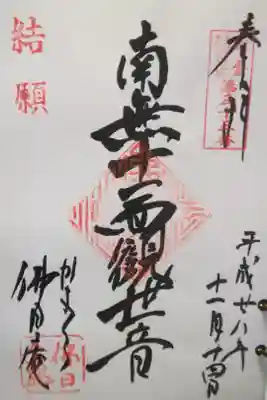 奉拝
平成廿八年
十一月十四日
南無十一面觀世音
結願
かまくら
佛日庵